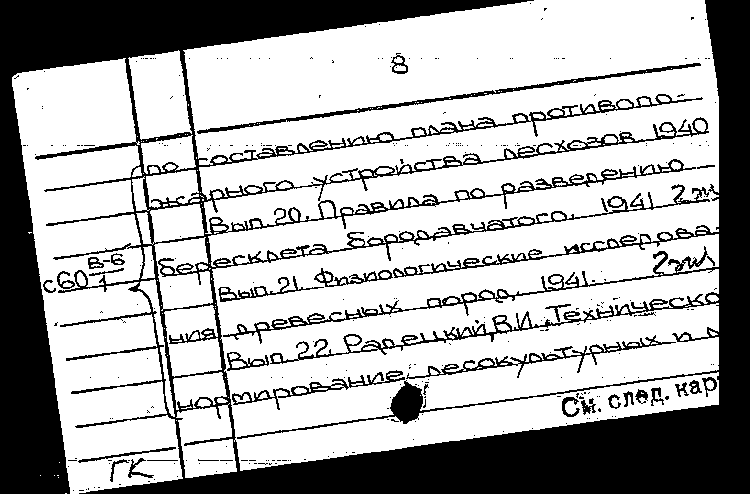 8
по составлению плана противопо-
жарного устройства лесхозов 1940
Вып. 20. Правила по разведению
бересклета бородавчатого. 1941 2 экз
с60 В-6/1
Вып. 21. Физиологические исследова-
ния древесных пород. 1941. 2 экз
Вып 22. Радецкий, В.И. Техническо
нормирование лесокультурных и л
См. след. кар
ГК